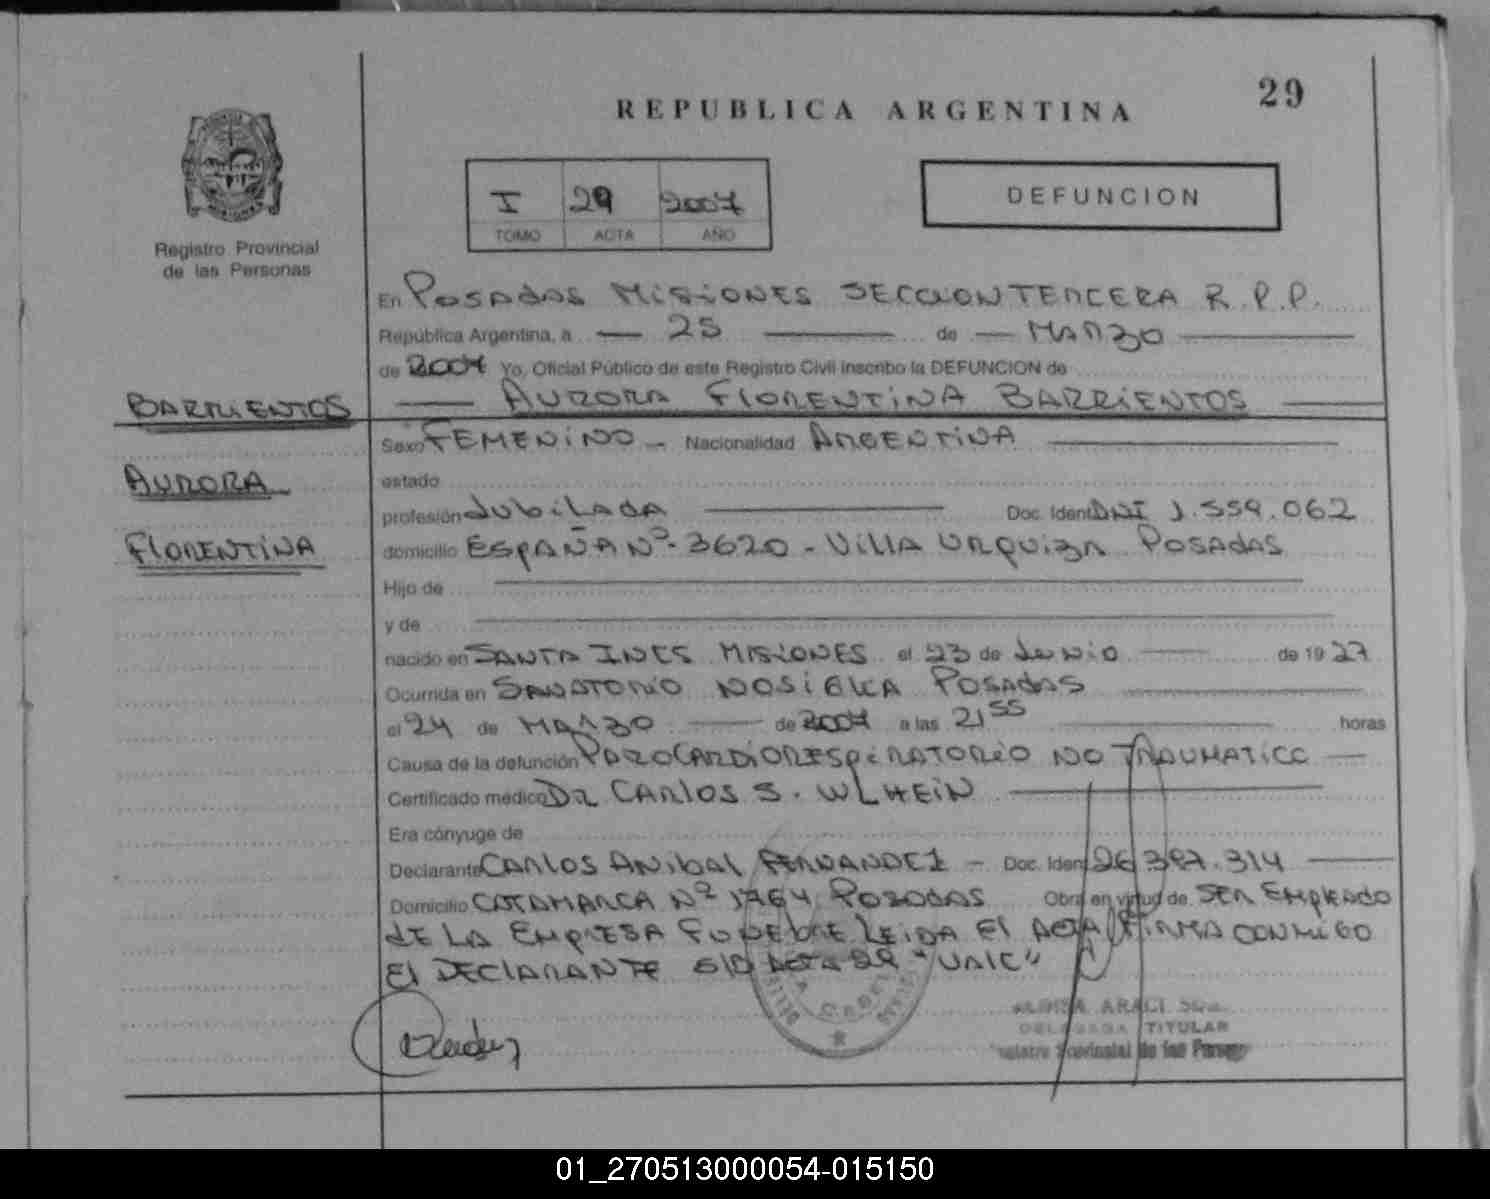 29
REPUBLICA ARGENTINA
I 29 2007
TOMO ACTA AÑO
DEFUNCION
Registro Provincial
de las Personas
En POSADAS MISIONES SECCION TERCERA R.P.P.
República Argentina, a 25 de MARZO
de 2007 Yo, Oficial Público de este Registro Civil inscribo la DEFUNCION de
BARRIENTOS AURORA FLORENTINA BARRIENTOS
Sexo FEMENINO - Nacionalidad ARGENTINA
AURORA estado
profesión JUBILADA Doc. Ident DNI 1.559.062
FLORENTINA domicilio ESPAÑA Nº 3620 - VILLA URQUIZA POSADAS
Hijo de
y de
nacido en SANTA INES MISIONES el 23 de JUNIO de 19 27
Ocurrida en SANATORIO NOSIGLIA POSADAS
el 24 de MARZO de 2007 a las 21 55 horas
Causa de la defunción PAROCARDIORESPIRATORIO NO TRAUMATICO
Certificado médico DR CARLOS S. WLHEIN
Era cónyuge de
Declarante CARLOS ANIBAL FERNANDEZ - Doc. Ident 26.387.314
Domicilio CATAMARCA Nº 1764 POSADAS Obra en virtud de SER EMPLEADO
DE LA EMPRESA FUNEBRE LEIDA EL ACTA FIRMA CONMIGO
EL DECLARANTE S/D ACTA 29 "VALE"
ARACI
DELEGADA TITULAR
Provincial de las
01_270513000054-015150